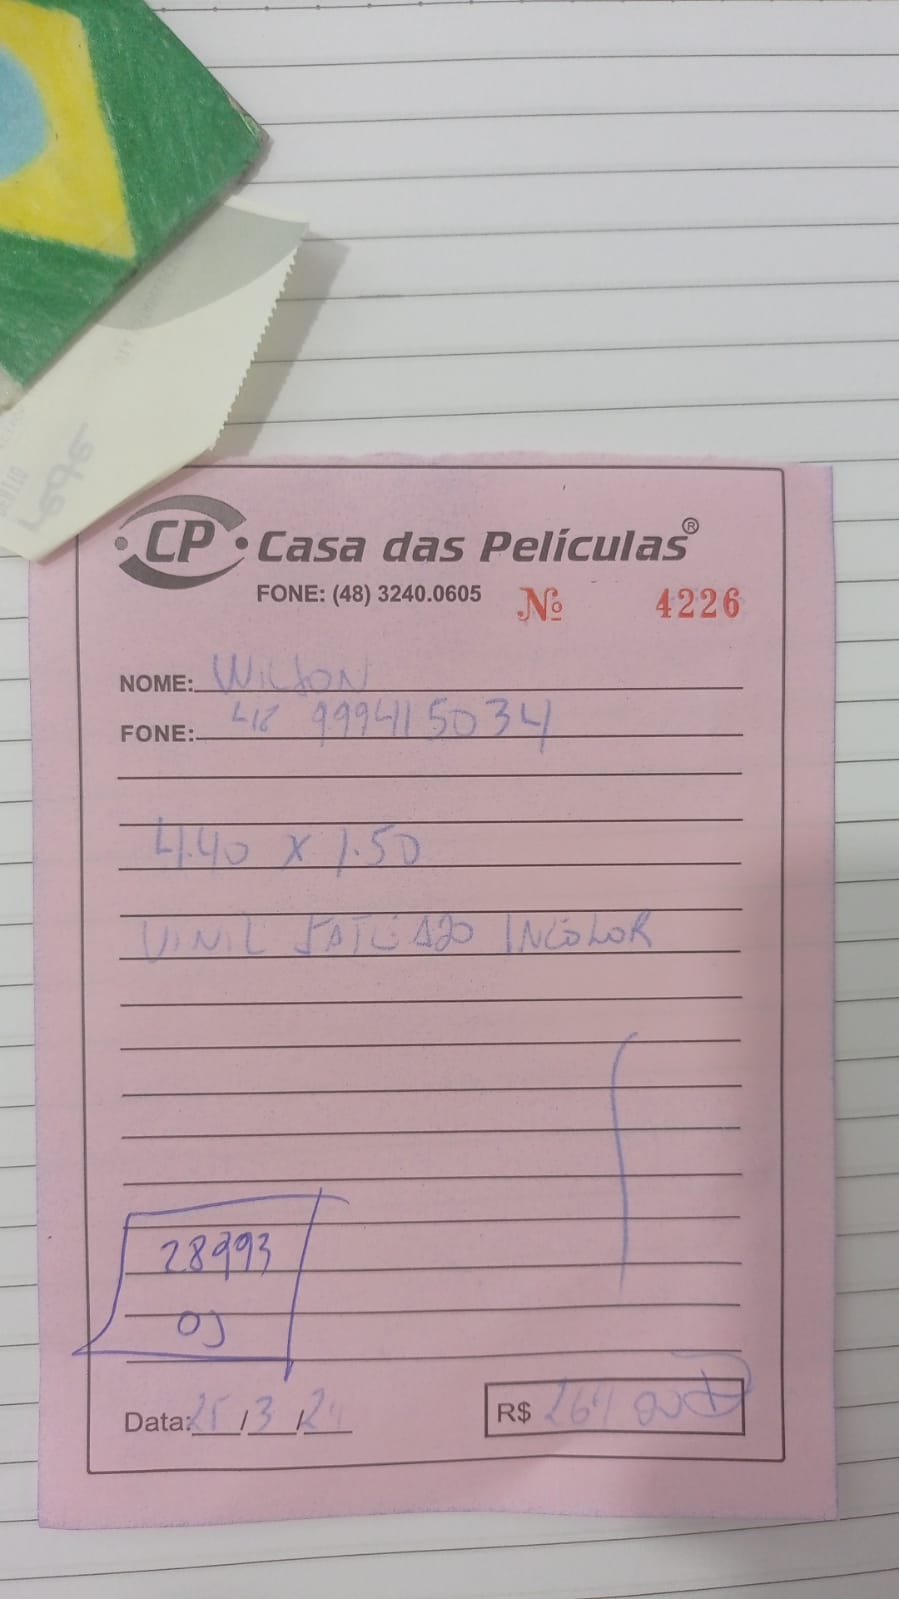 rede
CP Casa das Películas®
FONE: (48) 3240.0605 Nº 4226
NOME: WILSON
FONE: 48 999415034
4.40 X 1.50
VINIL JATEADO INCOLOR
28993
OS
Data: 25/3/24 R$ 264 00